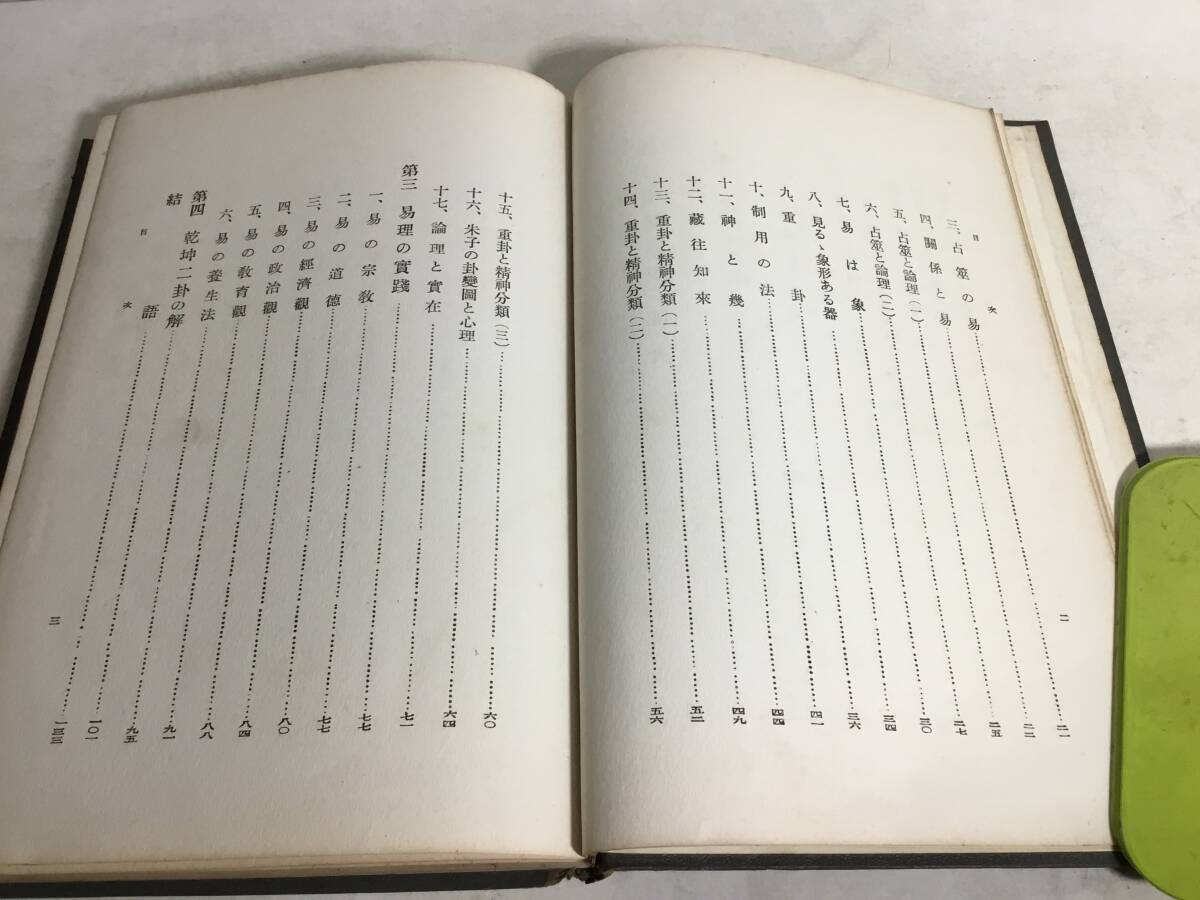 目次
二
三、占筮の易……二一
四、關係と易……二二
五、占筮と論理(一)……二五
六、占筮と論理(二)……二七
七、易は象……三〇
八、見るゝ象形ある器……三四
九、重卦……三六
十、制用の法……四一
十一、神と幾……四四
十二、藏往知來……四九
十三、重卦と精神分類(一)……五二
十四、重卦と精神分類(二)……五六
十五、重卦と精神分類(三)……六〇
十六、朱子の卦變圖と心理……六四
十七、論理と實在……七一
第三 易理の實踐……七七
一、易の宗教……七七
二、易の道德……八〇
三、易の經濟觀……八四
四、易の政治觀……八八
五、易の教育觀……九一
六、易の養生法……九五
第四 乾坤二卦の解……一〇一
結語……一三三
目次
三